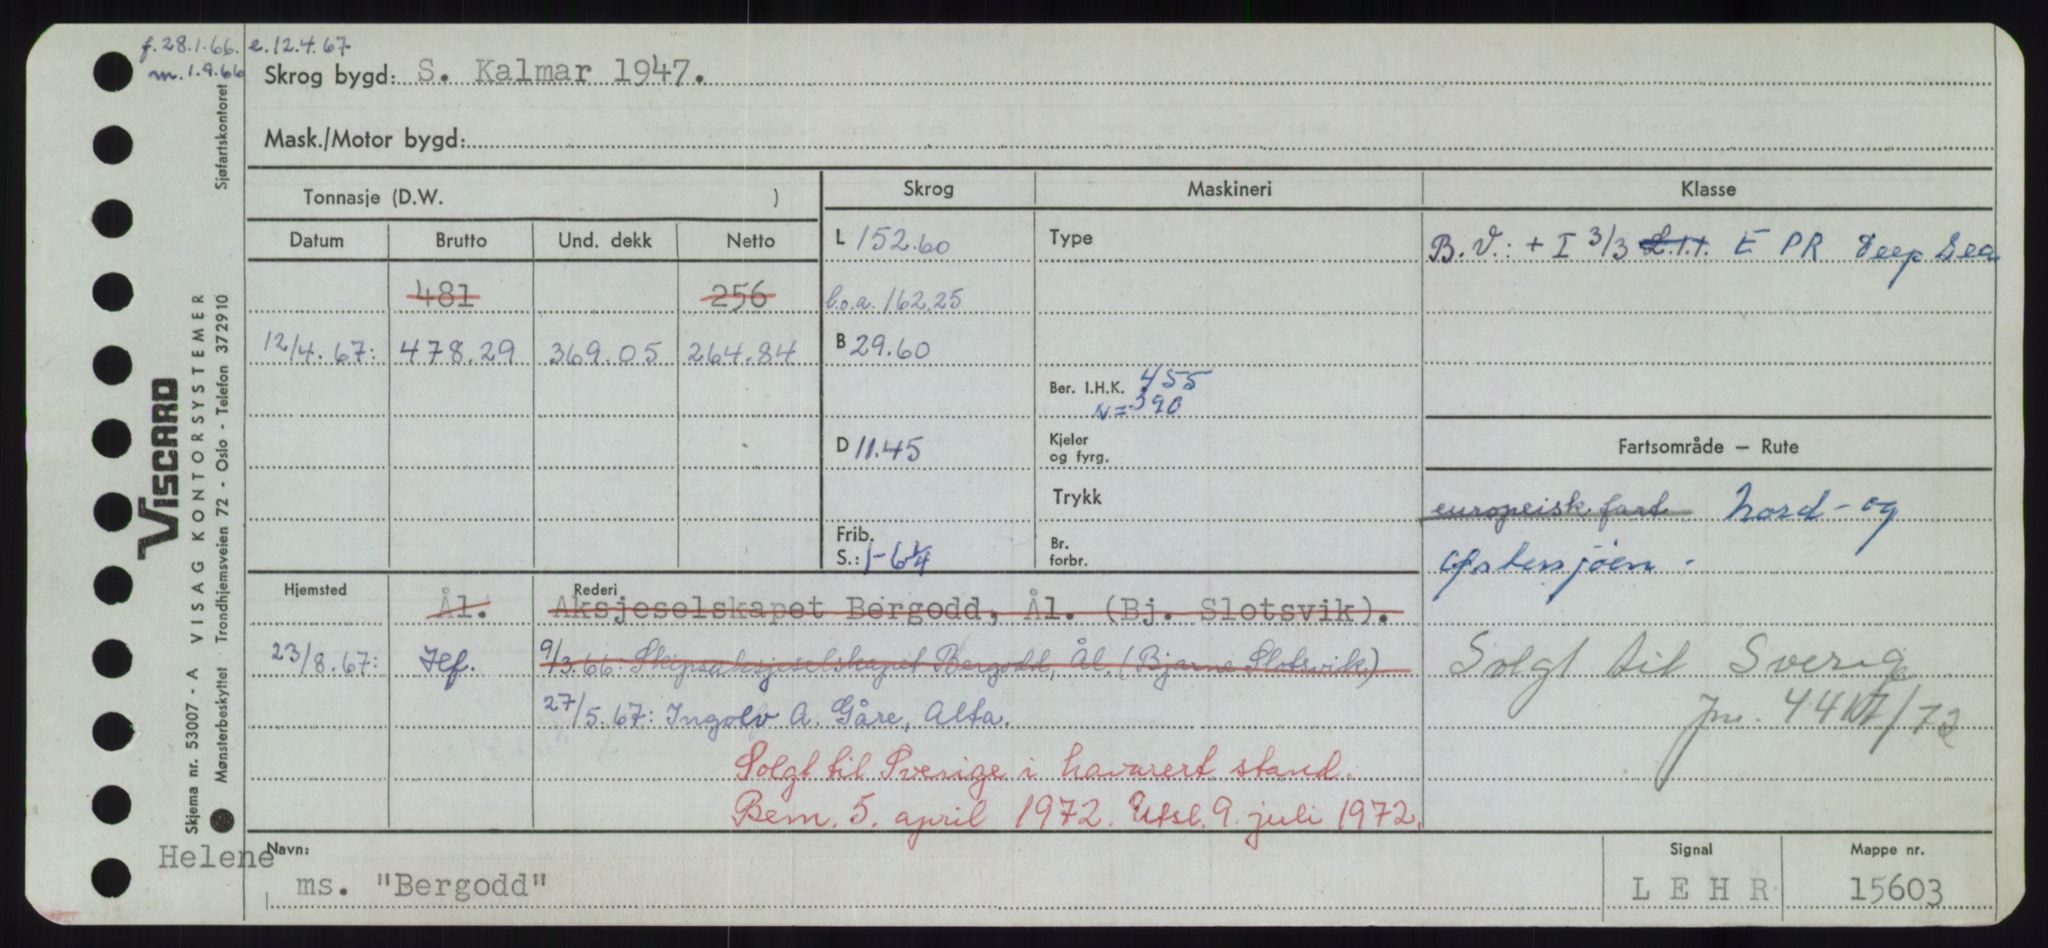 f. 28.1.66. e. 12.4.67
m. 1.9.66
Skrog bygd: S. Kalmar 1947.
Mask./Motor bygd:
Tonnasje (D.W. )
Skrog
Maskineri
Klasse
Datum
Brutto
Und. dekk
Netto
L 152.60
Type
B.V.: + I 3/3 L.1.1. E PR Deep Sea
481
256
l.o.a. 162.25
12/4.67: 478.29 369.05 264.84
B 29.60
Ber. I.H.K. 455
N = 390
D 11.45
Kjeler
og fyrg.
Fartsområde — Rute
Trykk
europeisk fart Nord- og
Østersjøen.
Frib.
S.: 1-6¼
Br.
forbr.
Hjemsted
Ål.
Rederi
Aksjeselskapet Bergodd, Ål. (Bj. Slotsvik).
23/8.67: Hf.
9/3.66: Skipsaksjeselskapet Bergodd, Ål. (Bjarne Slotsvik)
27/5.67: Ingolv A. Gåre, Alta.
Solgt til Sverige
Jnr. 44 /72
Solgt til Sverige i havarert stand.
Bem. 5. april 1972. Utsl. 9. juli 1972.
Helene
Navn:
ms. "Bergodd"
Signal
L E H R
Mappe nr.
15603
Sjøfartskontoret
VISCARD
Skjema nr. 53007 - A VISAG KONTORSYSTEMER
Mønsterbeskyttet Trondhjemsveien 72 - Oslo - Telefon 372910